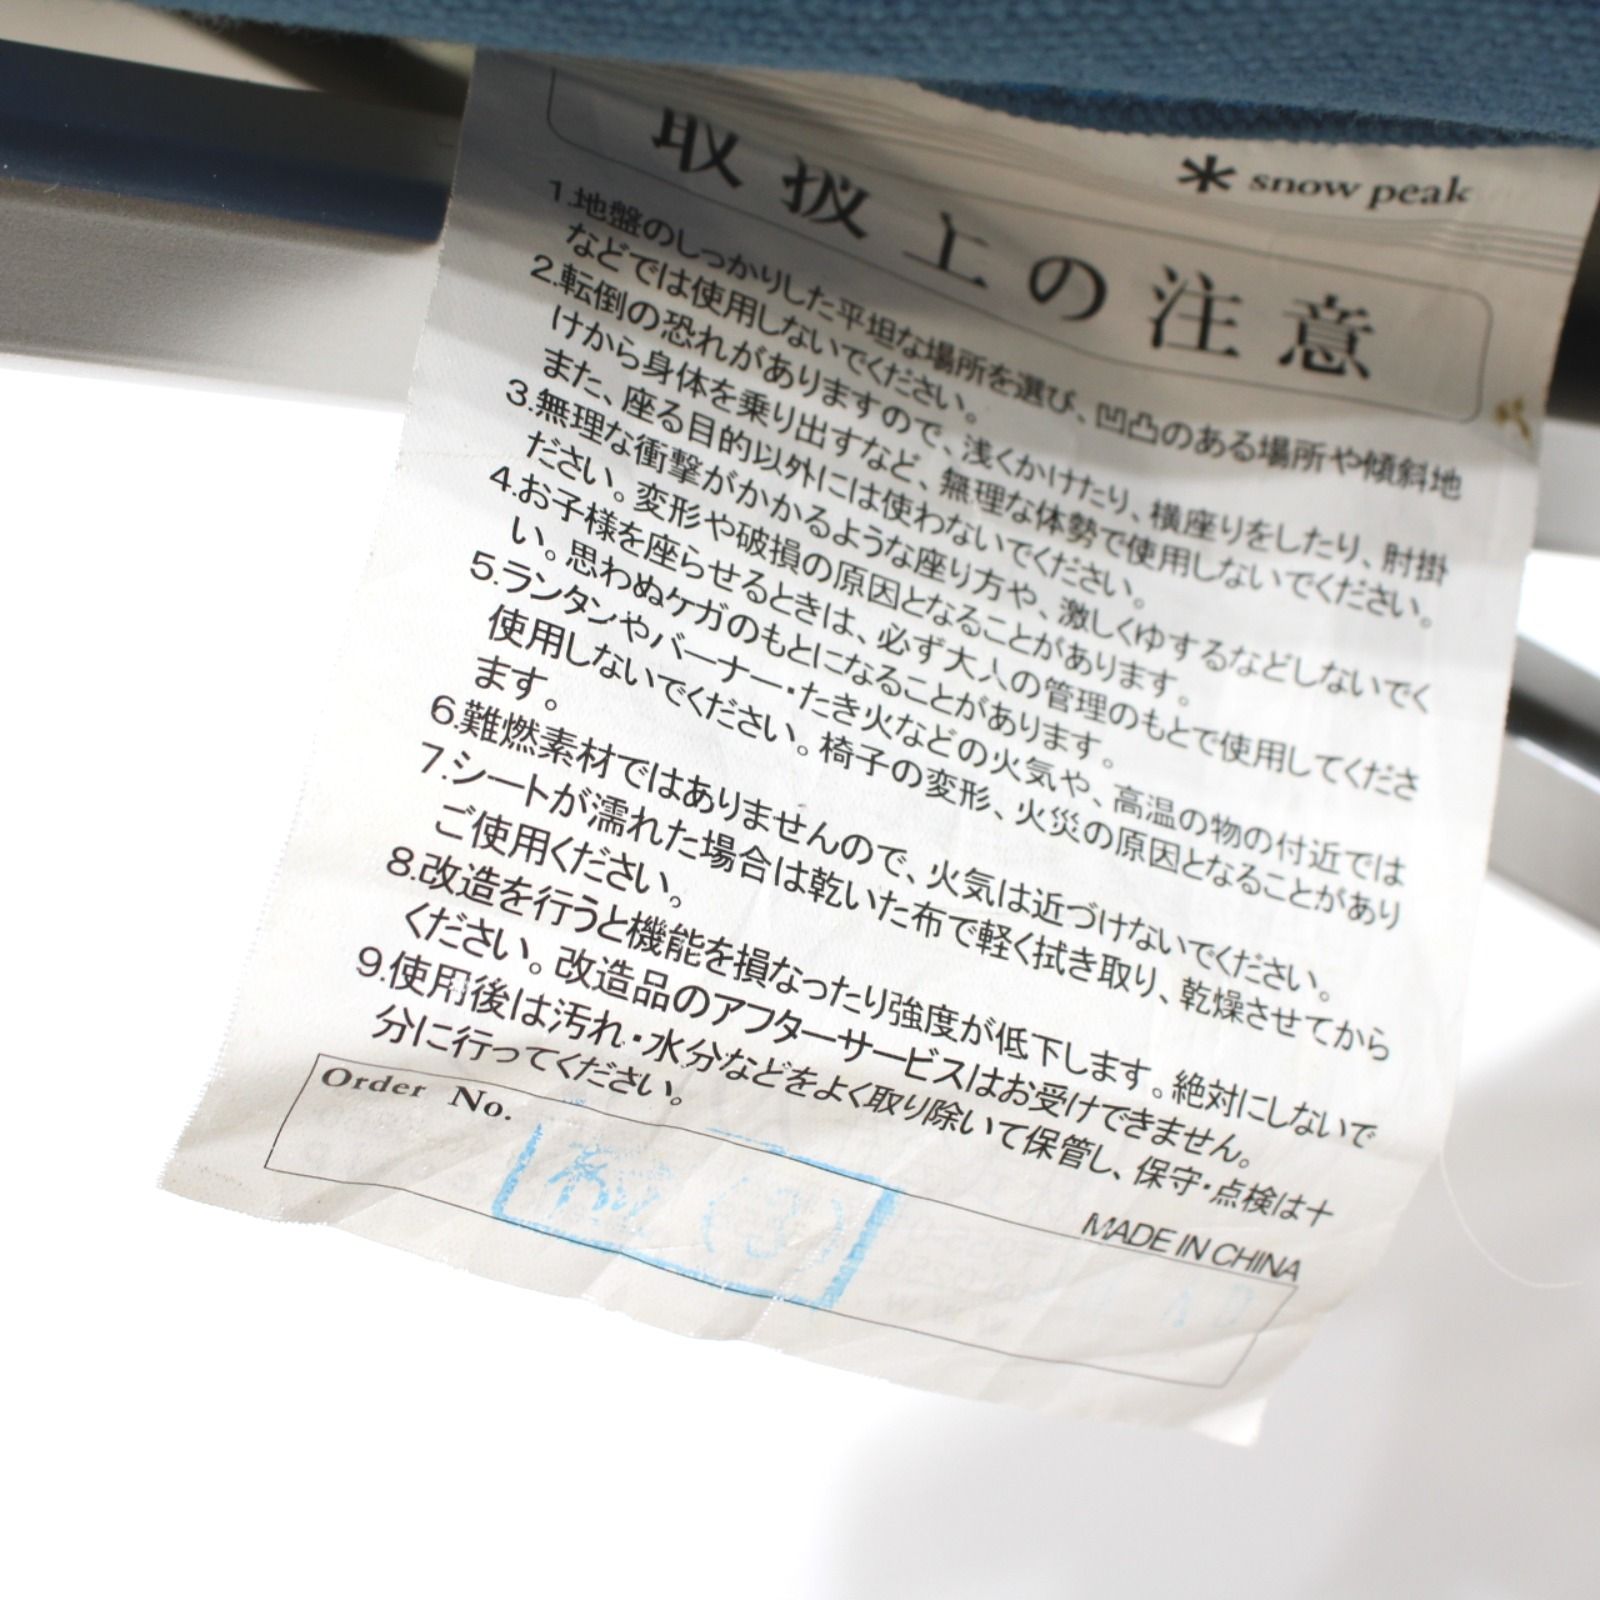 snow peak
取扱上の注意
1.地盤のしっかりした平坦な場所を選び、凹凸のある場所や傾斜地
などでは使用しないでください。
2.転倒の恐れがありますので、浅くかけたり、横座りをしたり、肘掛
けから身体を乗り出すなど、無理な体勢で使用しないでください。
また、座る目的以外には使わないでください。
3.無理な衝撃がかかるような座り方や、激しくゆするなどしないでく
ださい。変形や破損の原因となることがあります。
4.お子様を座らせるときは、必ず大人の管理のもとで使用してくださ
い。思わぬケガのもとになることがあります。
5.ランタンやバーナー・たき火などの火気や、高温の物の付近では
使用しないでください。椅子の変形、火災の原因となることがあり
ます。
6.難燃素材ではありませんので、火気は近づけないでください。
7.シートが濡れた場合は乾いた布で軽く拭き取り、乾燥させてから
ご使用ください。
8.改造を行うと機能を損なったり強度が低下します。絶対にしないで
ください。改造品のアフターサービスはお受けできません。
9.使用後は汚れ・水分などをよく取り除いて保管し、保守・点検は十
分に行ってください。
MADE IN CHINA
Order No.